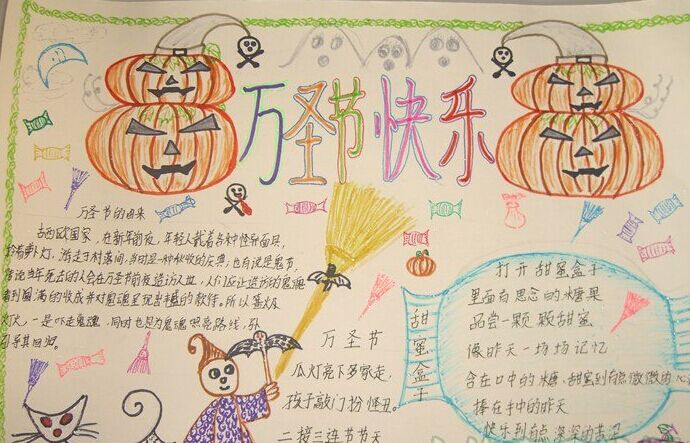 万圣节快乐
万圣节的由来
古西欧国家，在新年前夜，年轻人戴着各种怪异面具，
拎着萝卜灯，游走于村落间，当时是一种秋收的庆典；也有说是鬼节，
传说当年死去的人会在万圣节前夜造访人世，人们应让造访的鬼魂
看到圆满的收成并对鬼魂呈现丰盛的款待。所以篝火及
灯火，一是吓走鬼魂，同时也是为鬼魂照亮路线，
引导其回归。
万圣节
瓜灯亮下多家走，
孩子敲门扮怪丑。
二接三连节节天
甜蜜盒子
打开甜蜜盒子
里面有思念的糖果
品尝一颗颗甜蜜
像昨天一场场记忆
含在口中的糖，甜蜜到有点微微的
捧在手中的昨天
快乐到有点深深的苦涩